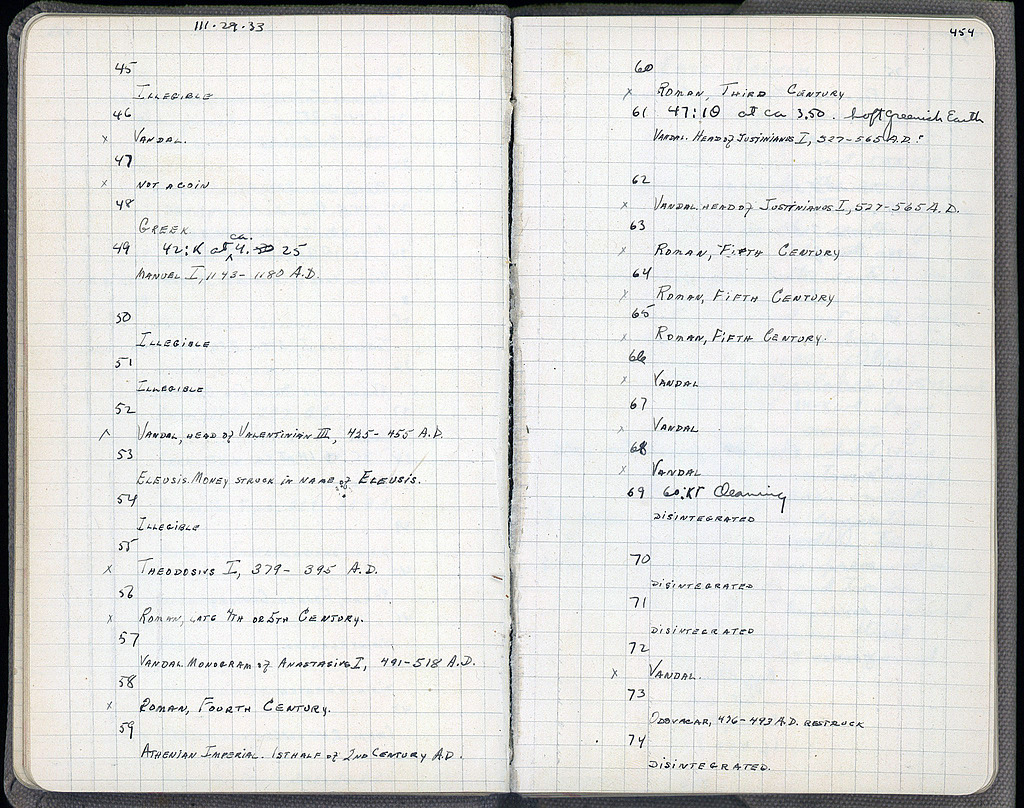 111·29·33
45
ILLEGIBLE
46
x VANDAL.
47
x NOT A COIN
48
GREEK
49 42:K at ca. 4. 25
MANUEL I, 1143-1180 A.D.
50
ILLEGIBLE
51
ILLEGIBLE
52
VANDAL, HEAD of VALENTINIAN III, 425-455 A.D.
53
ELEUSIS. MONEY STRUCK IN NAME of ELEUSIS.
54
ILLEGIBLE
55
x THEODOSIUS I, 379-395 A.D.
56
x ROMAN, LATE 4TH OR 5TH CENTURY.
57
VANDAL MONOGRAM of ANASTASIUS I, 491-518 A.D.
58
x ROMAN, FOURTH CENTURY.
59
ATHENIAN IMPERIAL. 1ST HALF of 2ND CENTURY A.D.
454
60
x ROMAN, THIRD CENTURY
61 47:10 at ca 3.50. Soft greenish Earth
VANDAL. HEAD of JUSTINIANUS I, 527-565 A.D.?
62
x VANDAL HEAD of JUSTINIANUS I, 527-565 A.D.
63
x ROMAN, FIFTH CENTURY
64
x ROMAN, FIFTH CENTURY
65
x ROMAN, FIFTH CENTURY.
66
x VANDAL
67
x VANDAL
68
x VANDAL
69 Cleaning
DISINTEGRATED
70
DISINTEGRATED
71
DISINTEGRATED
72
x VANDAL.
73
ODOVACAR, 476-493 A.D. RESTRUCK
74
DISINTEGRATED.